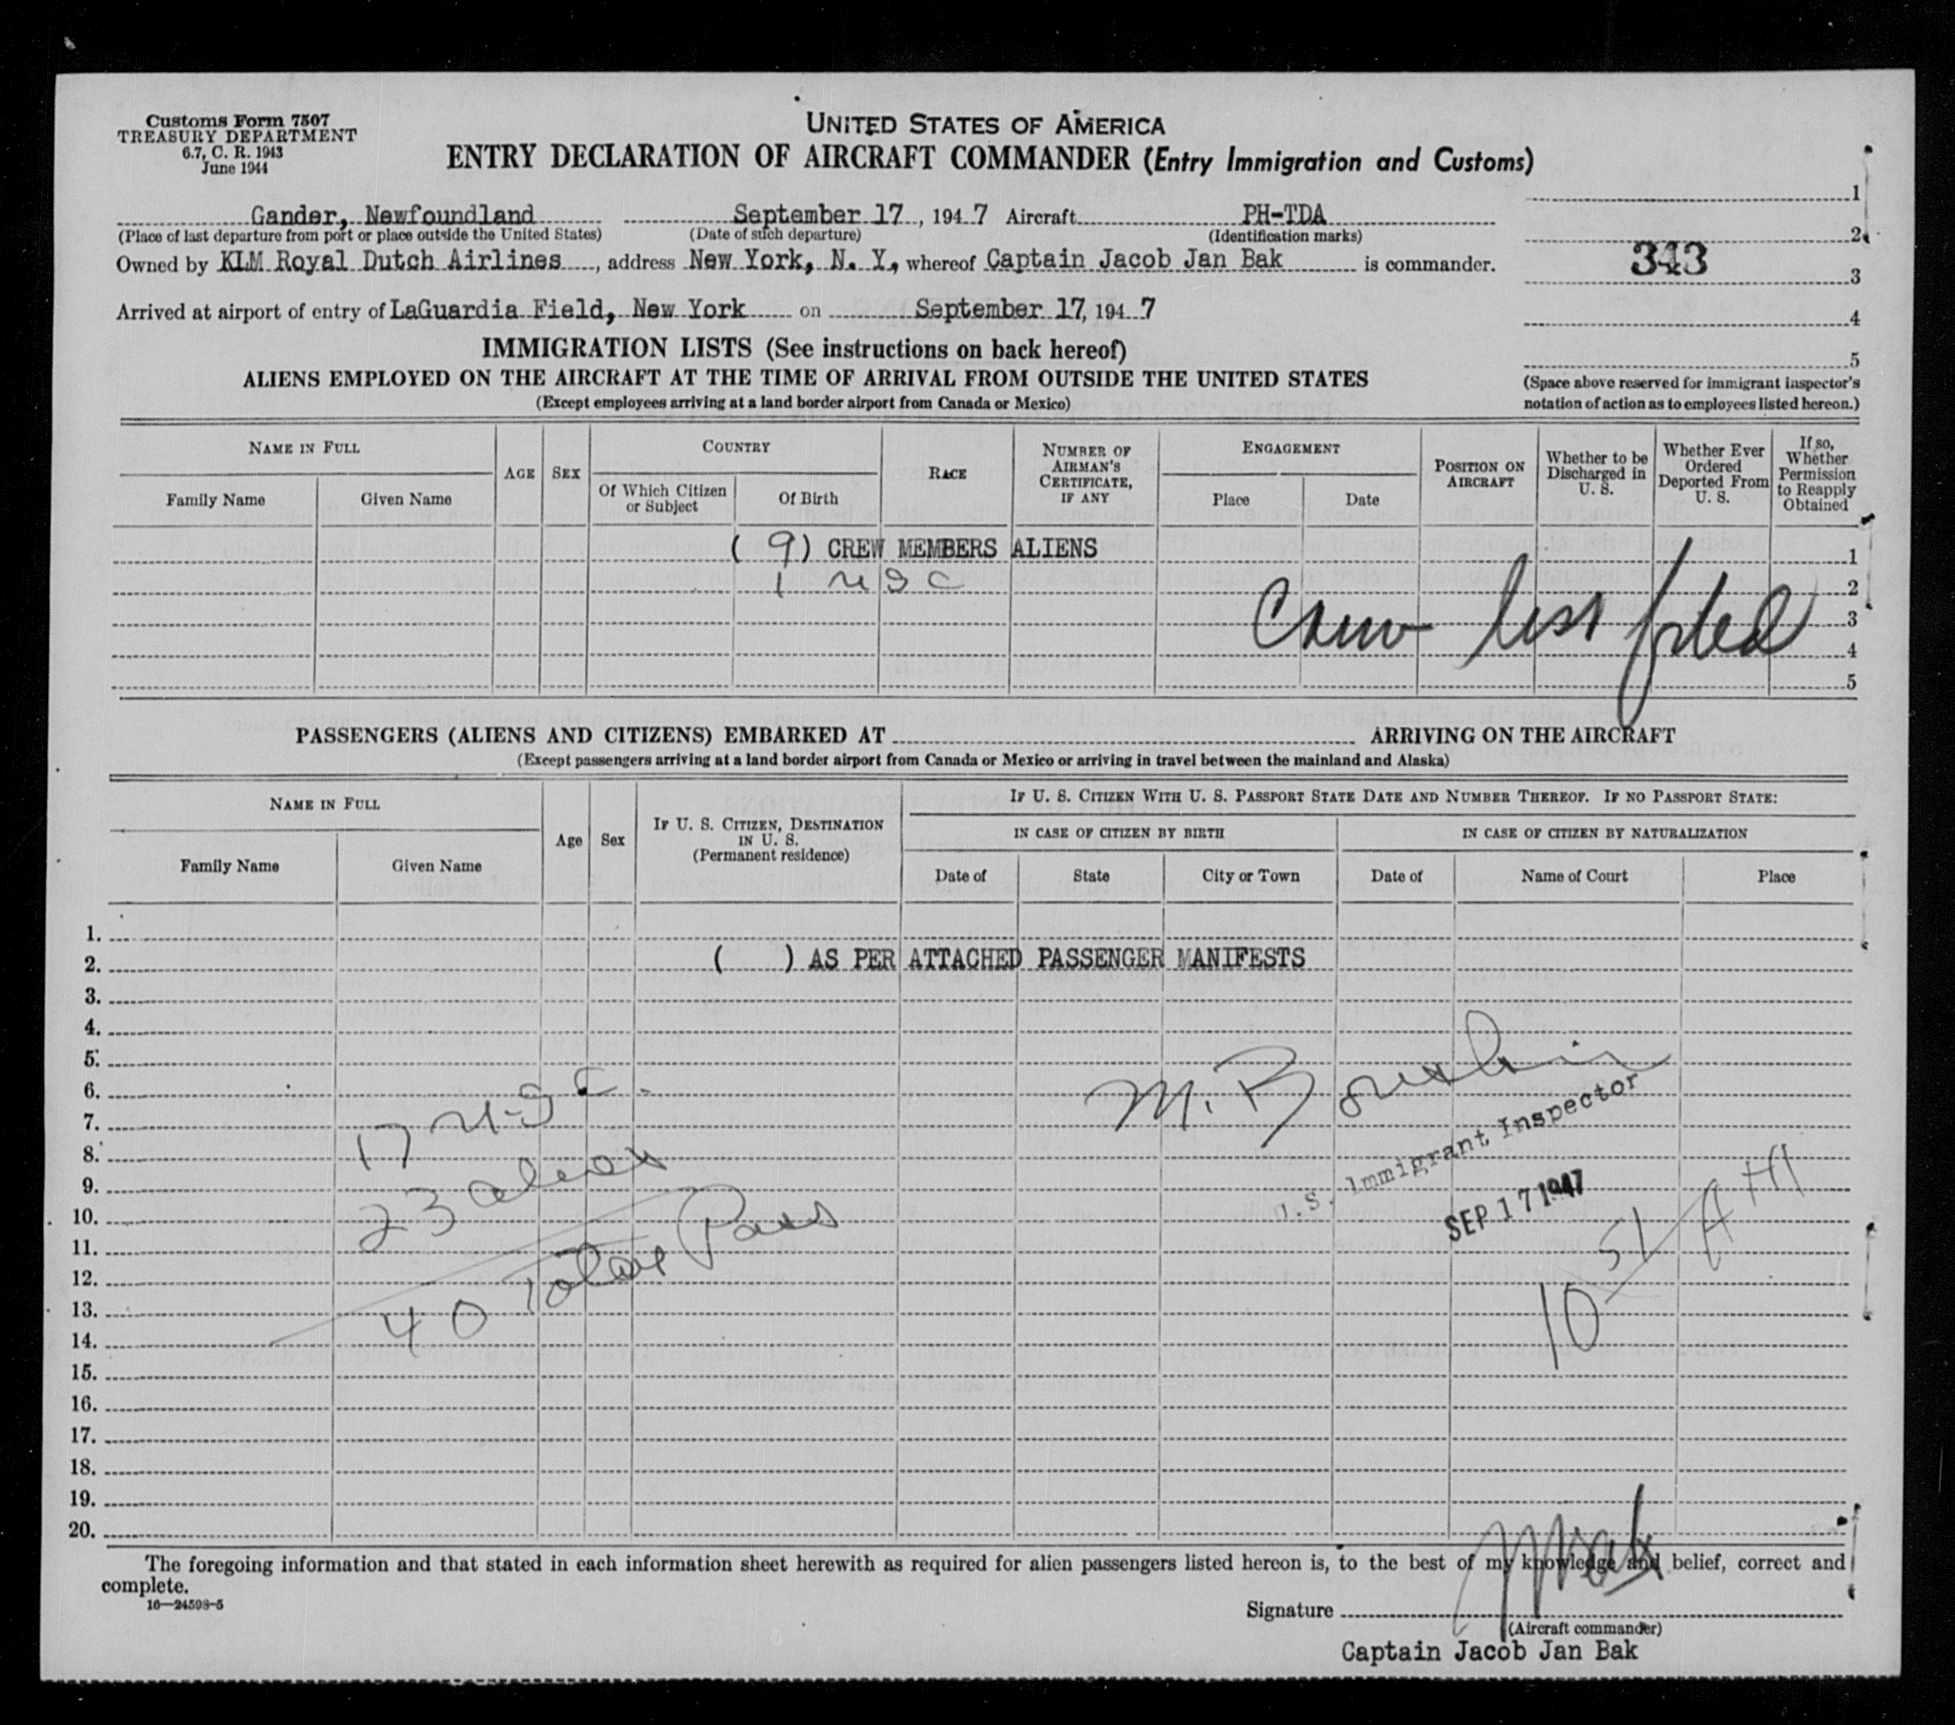 Customs Form 7507
TREASURY DEPARTMENT
6.7, C. R. 1943
June 1944
UNITED STATES OF AMERICA
ENTRY DECLARATION OF AIRCRAFT COMMANDER (Entry Immigration and Customs)
Gander, Newfoundland September 17, 1947 Aircraft PH-TDA
(Place of last departure from port or place outside the United States) (Date of such departure) (Identification marks)
Owned by KLM Royal Dutch Airlines, address New York, N. Y., whereof Captain Jacob Jan Bak is commander.
Arrived at airport of entry of LaGuardia Field, New York on September 17, 1947
1
2
343
3
4
5
(Space above reserved for immigrant inspector's
notation of action as to employees listed hereon.)
IMMIGRATION LISTS (See instructions on back hereof)
ALIENS EMPLOYED ON THE AIRCRAFT AT THE TIME OF ARRIVAL FROM OUTSIDE THE UNITED STATES
(Except employees arriving at a land border airport from Canada or Mexico)
NAME IN FULL
Family Name
Given Name
AGE
SEX
COUNTRY
Of Which Citizen
or Subject
Of Birth
RACE
NUMBER OF
AIRMAN'S
CERTIFICATE,
IF ANY
ENGAGEMENT
Place
Date
POSITION ON
AIRCRAFT
Whether to be
Discharged in
U. S.
Whether Ever
Ordered
Deported From
U. S.
If so,
Whether
Permission
to Reapply
Obtained
(9) CREW MEMBERS ALIENS 1
1 USC 2
Crew list filed 3
4
5
PASSENGERS (ALIENS AND CITIZENS) EMBARKED AT ARRIVING ON THE AIRCRAFT
(Except passengers arriving at a land border airport from Canada or Mexico or arriving in travel between the mainland and Alaska)
NAME IN FULL
Family Name
Given Name
Age
Sex
IF U. S. CITIZEN, DESTINATION
IN U. S.
(Permanent residence)
IF U. S. CITIZEN WITH U. S. PASSPORT STATE DATE AND NUMBER THEREOF. IF NO PASSPORT STATE:
IN CASE OF CITIZEN BY BIRTH
Date of
State
City or Town
IN CASE OF CITIZEN BY NATURALIZATION
Date of
Name of Court
Place
1.
2. ( ) AS PER ATTACHED PASSENGER MANIFESTS
3.
4.
5.
6.
7.
8.
9.
10.
11.
12.
13.
14.
15.
16.
17.
18.
19.
20.
17 USC.
23 aliens
40 Total Pass
M.
U.S. Immigrant Inspector
SEP 17 1947
10 51 A M
The foregoing information and that stated in each information sheet herewith as required for alien passengers listed hereon is, to the best of my knowledge and belief, correct and
complete.
16—24598-5
Signature
(Aircraft commander)
Captain Jacob Jan Bak